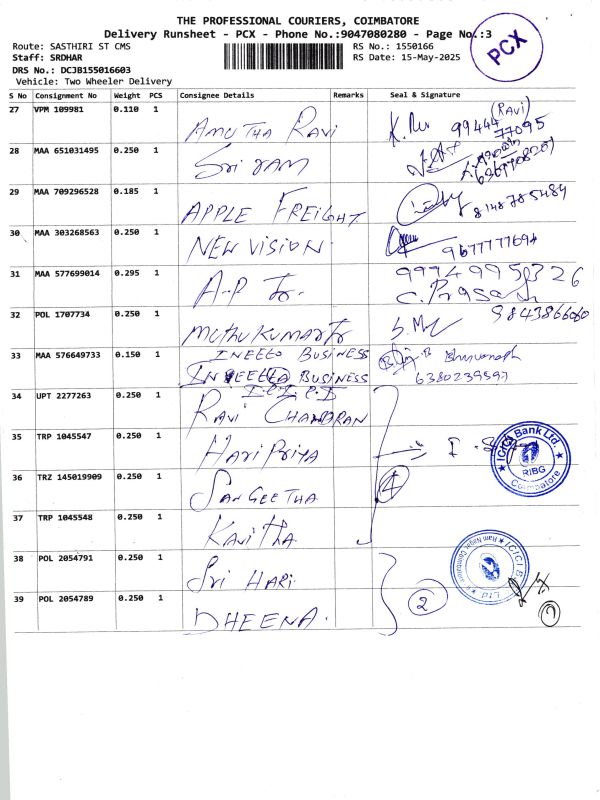 THE PROFESSIONAL COURIERS, COIMBATORE
Delivery Runsheet - PCX - Phone No.:9047080280 - Page No.:3
PCX
Route: SASTHIRI ST CMS
RS No.: 1550166
Staff: SRDHAR
RS Date: 15-May-2025
DRS No.: DCJB155016603
Vehicle: Two Wheeler Delivery
S No Consignment No Weight PCS Consignee Details Remarks Seal & Signature
27 VPM 109981 0.110 1 AMUTHA RAVI (RAVI) 99444 77095
28 MAA 651031495 0.250 1 Sri ram
29 MAA 709296528 0.185 1 APPLE FREIGHT 8148785484
30 MAA 303268563 0.250 1 NEW VISION 9677777694
31 MAA 577699014 0.295 1 A.P Tr. C. Prasa
32 POL 1707734 0.250 1 MUTHUKUMAR Tr 9843866060
33 MAA 576649733 0.150 1 INEETO BUSINESS
BUSINESS 6380239597
34 UPT 2277263 0.250 1 I.C.I.C.I
RAVI CHANDRAN
35 TRP 1045547 0.250 1 HARI PRIYA
ICICI Bank Ltd. RIBG Coimbatore
36 TRZ 145019909 0.250 1 SANGEETHA 4
37 TRP 1045548 0.250 1 KAVITHA
38 POL 2054791 0.250 1 Sri HARI
39 POL 2054789 0.250 1 DHEENA. 2